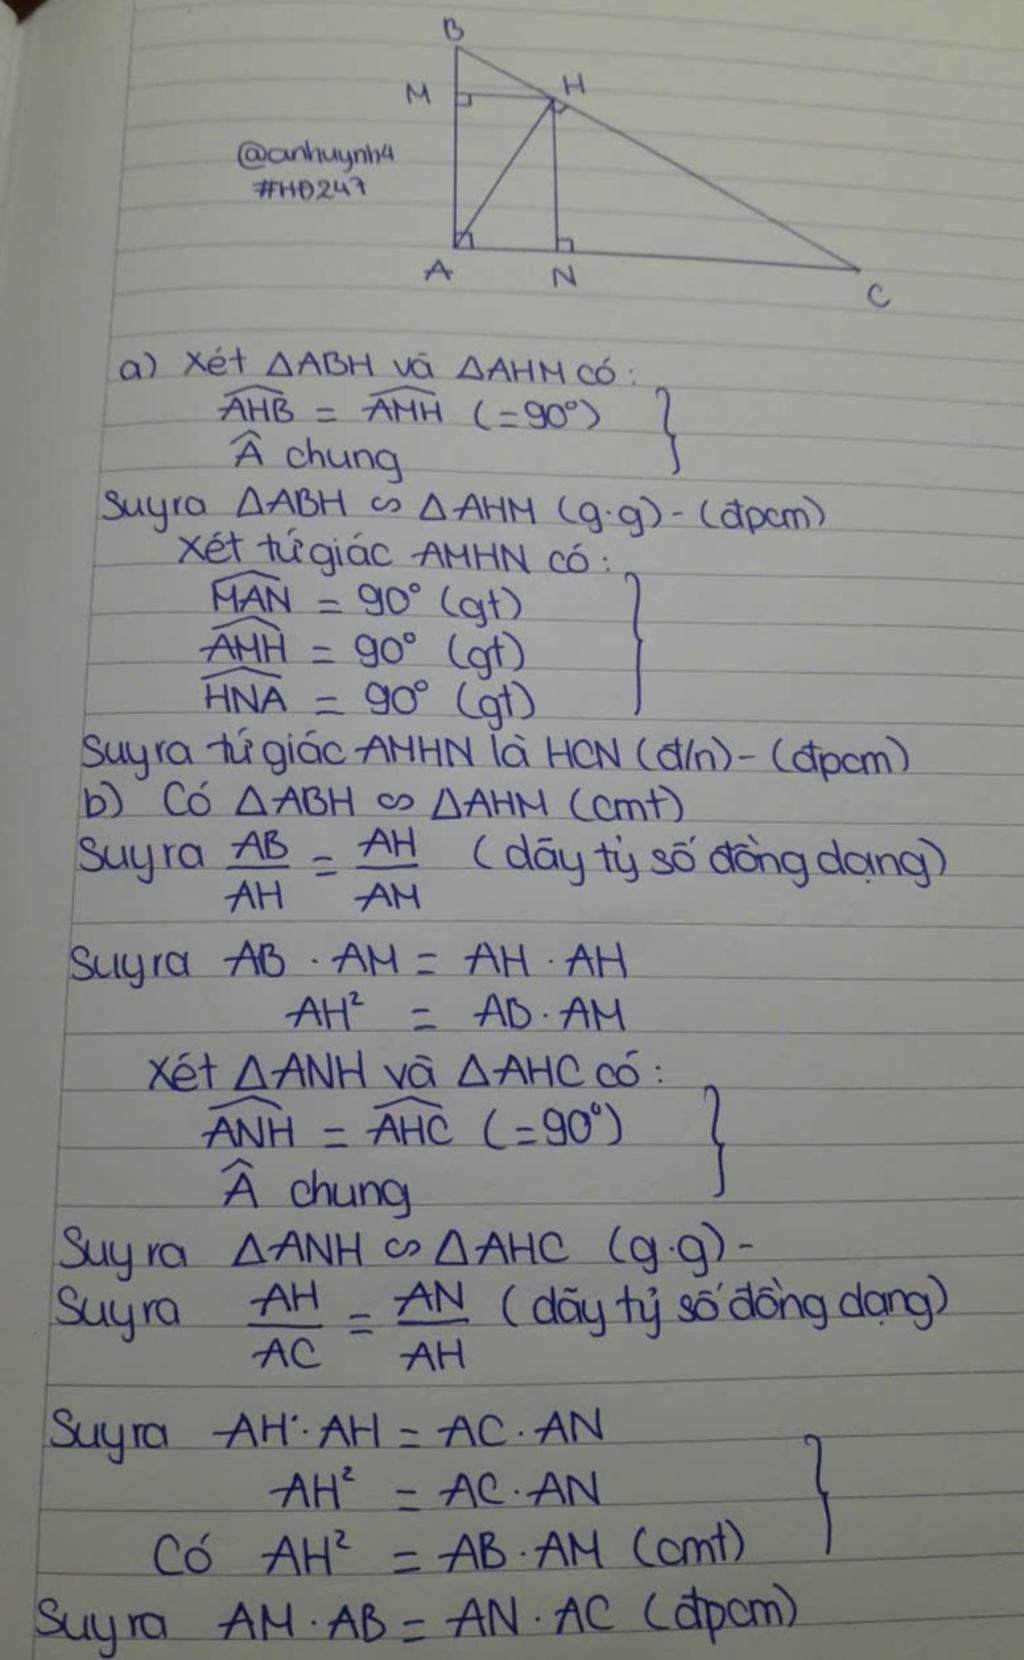 B
M
H
@anhuynh4
#HĐ247
A
N
C
a) Xét ΔABH và ΔAHM có:
$\widehat{AHB}$ = $\widehat{AMH}$ (=90°)
Â chung
Suy ra ΔABH ∽ ΔAHM (g.g) - (đpcm)
Xét tứ giác AMHN có:
$\widehat{MAN}$ = 90° (gt)
$\widehat{AMH}$ = 90° (gt)
$\widehat{HNA}$ = 90° (gt)
Suy ra tứ giác AMHN là HCN (đ/n) - (đpcm)
b) Có ΔABH ∽ ΔAHM (cmt)
Suy ra $\frac{AB}{AH}$ = $\frac{AH}{AM}$ (dãy tỷ số đồng dạng)
Suy ra AB . AM = AH . AH
AH² = AB . AM
Xét ΔANH và ΔAHC có:
$\widehat{ANH}$ = $\widehat{AHC}$ (=90°)
Â chung
Suy ra ΔANH ∽ ΔAHC (g.g) -
Suy ra $\frac{AH}{AC}$ = $\frac{AN}{AH}$ (dãy tỷ số đồng dạng)
Suy ra AH . AH = AC . AN
AH² = AC . AN
Có AH² = AB . AM (cmt)
Suy ra AM . AB = AN . AC (đpcm)